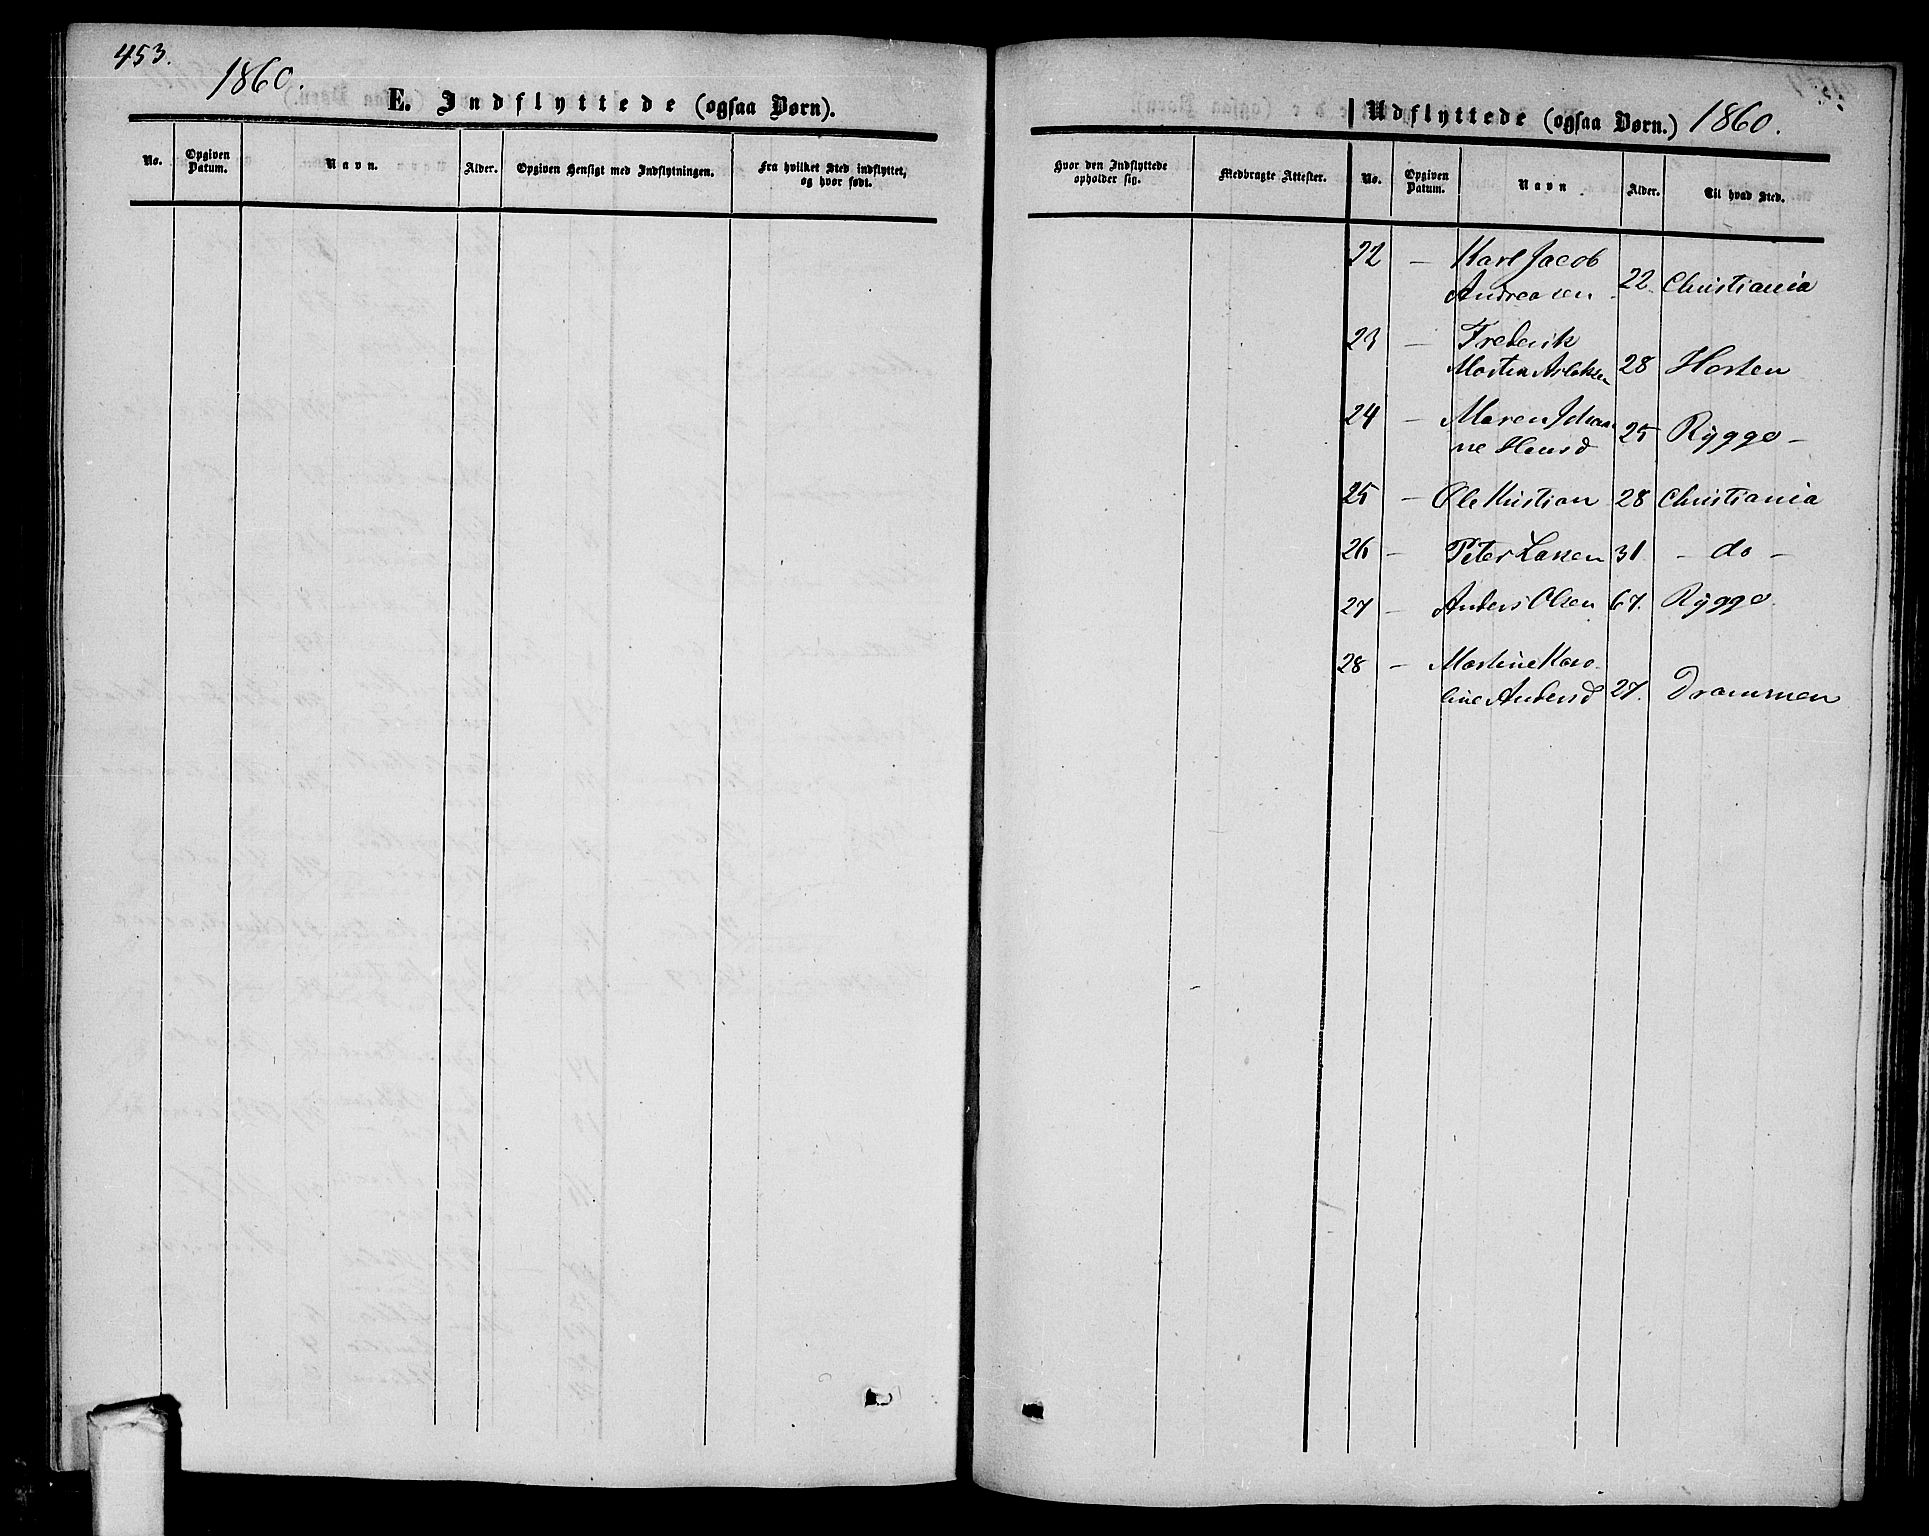 453.
1860.
E. Indflyttede (ogsaa Børn).
No.
Opgiven Datum.
Navn.
Alder.
Opgiven Hensigt med Indflytningen.
Fra hvilket Sted indflyttet, og hvor født.
Udflyttede (ogsaa Børn.) 1860.
Hvor den Indflyttede opholder sig.
Medbragte Attester.
No.
Opgiven Datum.
Navn
Alder.
Til hvad Sted.
22 — Karl Jacob
Andreasen 22. Christiania
23 — Frederik
Morten Aslaksen 28 Horten
24 — Maren Johan
ne Hansd 25 Rygge —
25 — Ole Kristian 28 Christiania
26 — Peter Larsen 31 — do —
27 — Anders Olsen 67. Rygge.
28 — Martine Karo
line Andersd 27. Drammen